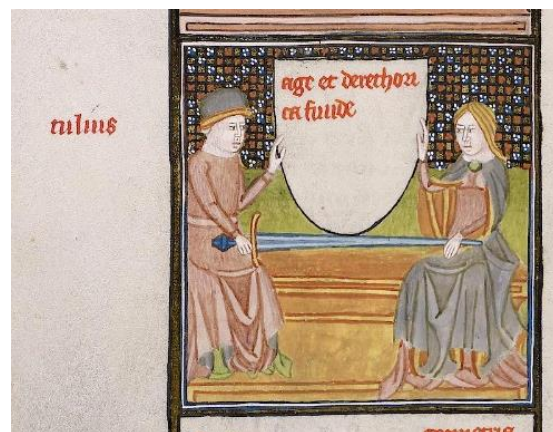 tulius
age et derethori
ca funde